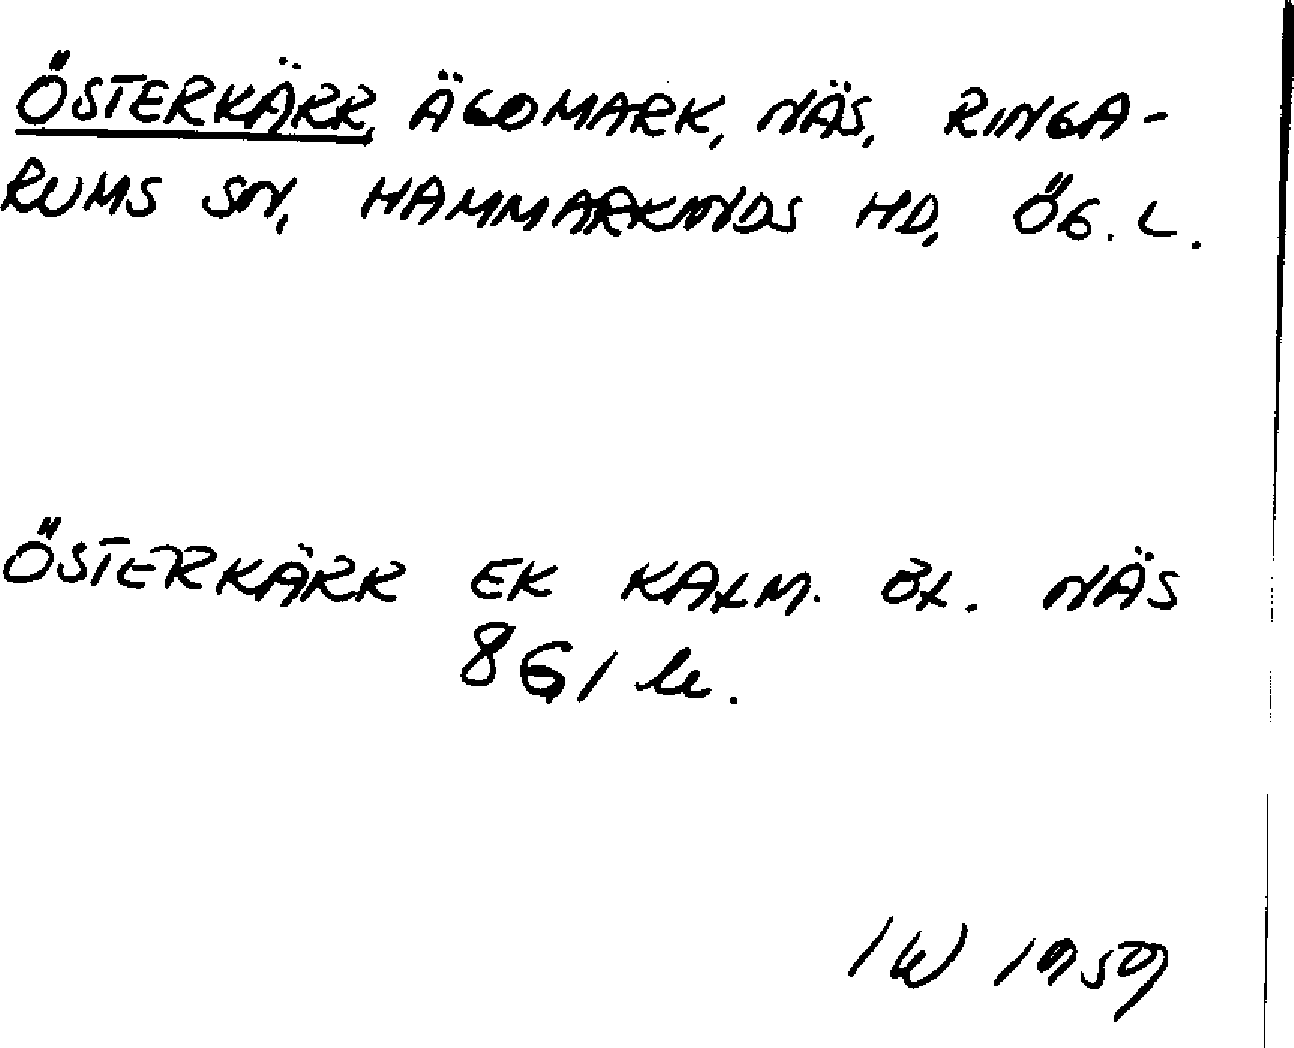 ÖSTERKÄRR, ÄGOMARK, NÄS, RINGA-
RUMS SN, HAMMARKINDS HD, ÖG. L.
ÖSTERKÄRR EK KA4M. BL. NÄS
8 G 1 le.
IW 1959